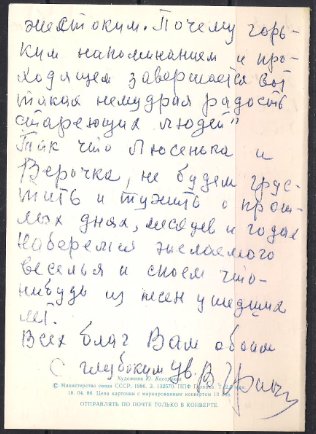 жестоким. Почему горь-
ким напоминанием и про-
ходящем завершается вот
такая немудрая радость
стареющих людей"
Так что Люсенька и
Верочка, не будем грус-
тить и тужить о прош-
лых днях, месяцев и годах
Наберемся желаемого
веселья и споем что-
нибудь из тех ушедших
лет.
Всех благ Вам обоим
С глубоким ув.
Художник Ю.
© Министерство связи СССР, 1986. З.
18. 04. 86. Цена карточки с маркированным конвертом
ОТПРАВЛЯТЬ ПО ПОЧТЕ ТОЛЬКО В КОНВЕРТЕ.